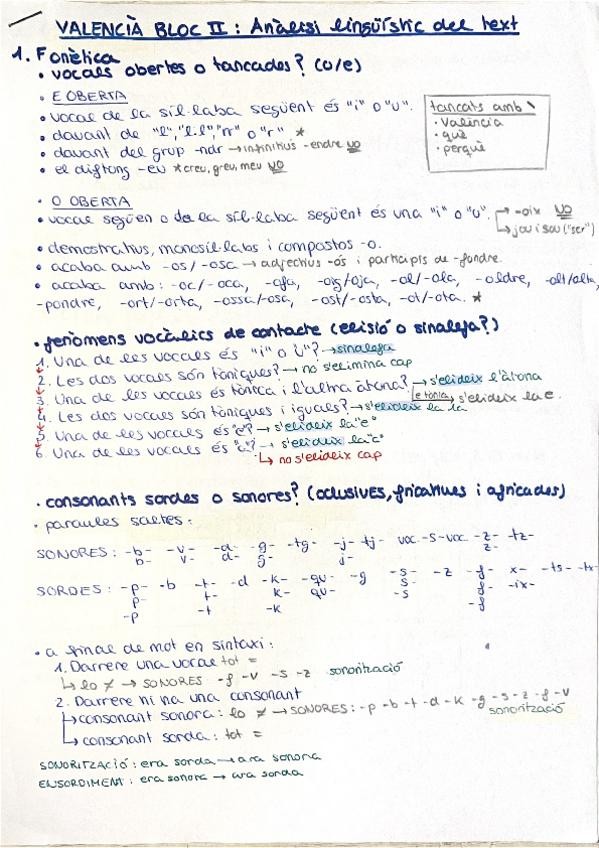 VALENCIÀ BLOC II : Anàlisi lingüístic del text
1. Fonètica
• vocals obertes o tancades? (o/e)
• E OBERTA
• vocal de la síl·laba següent és "i" o "u".
• davant de "l", "l·l", "rr" o "r" *
• davant del grup -ndr → infinitius -endre NO
• el diftong -eu * creu, greu, meu NO
tancats amb `
• València
• què
• perquè
• O OBERTA
• vocal següen o de la síl·laba següent és una "i" o "u". → -oix NO
→ jou i sou ("ser")
• demostratius, monosíl·labs i compostos -o.
• acaba amb -os/-osa → adjectius -ós i participis de -fondre.
• acaba amb: -oc/-oca, -ofa, -oig/oja, -ol/-ola, -oldre, -olt/olta,
-pondre, -ort/-orta, -ossa/-osa, -ost/-osta, -ot/-ota. *
• fenòmens vocàlics de contacte (elisió o sinalefa?)
1. Una de les vocals és "i" o "u"? → sinalefa
2. Les dos vocals són tòniques? → no s'elimina cap
3. Una de les vocals és tònica i l'altra àtona? → s'elideix l'àtona
e tònica → s'elideix la e.
4. Les dos vocals són tòniques i iguals? → s'elideix la 1a
5. Una de les vocals és "e"? → s'elideix la "e"
6. Una de les vocals és "a"? → s'elideix la "a"
↳ no s'elideix cap
• consonants sordes o sonores? (oclusives, fricatives i africades)
• paraules soltes:
SONORES: -b- -v- -d- -g- -tg- -j- -tj- voc -s- voc -z- -tz-
b- v- d- g- j- z-
SORDES: -p- -b -t- -d -k- -qu- -g -s- -z -f- x- -ts- -tx-
p- t- k- qu- s- f- -ix-
-p -t -k -s -f
• a final de mot en sintaxi:
1. Darrere una vocal tot =
↳ lo ≠ → SONORES -f -v -s -z sonorització
2. Darrere hi ha una consonant
↳ consonant sonora: lo ≠ → SONORES: -p -b -t -d -k -g -s -z -f -v
sonorització
↳ consonant sorda: tot =
SONORITZACIÓ: era sorda → ara sonora
ENSORDIMENT: era sonora → ara sorda